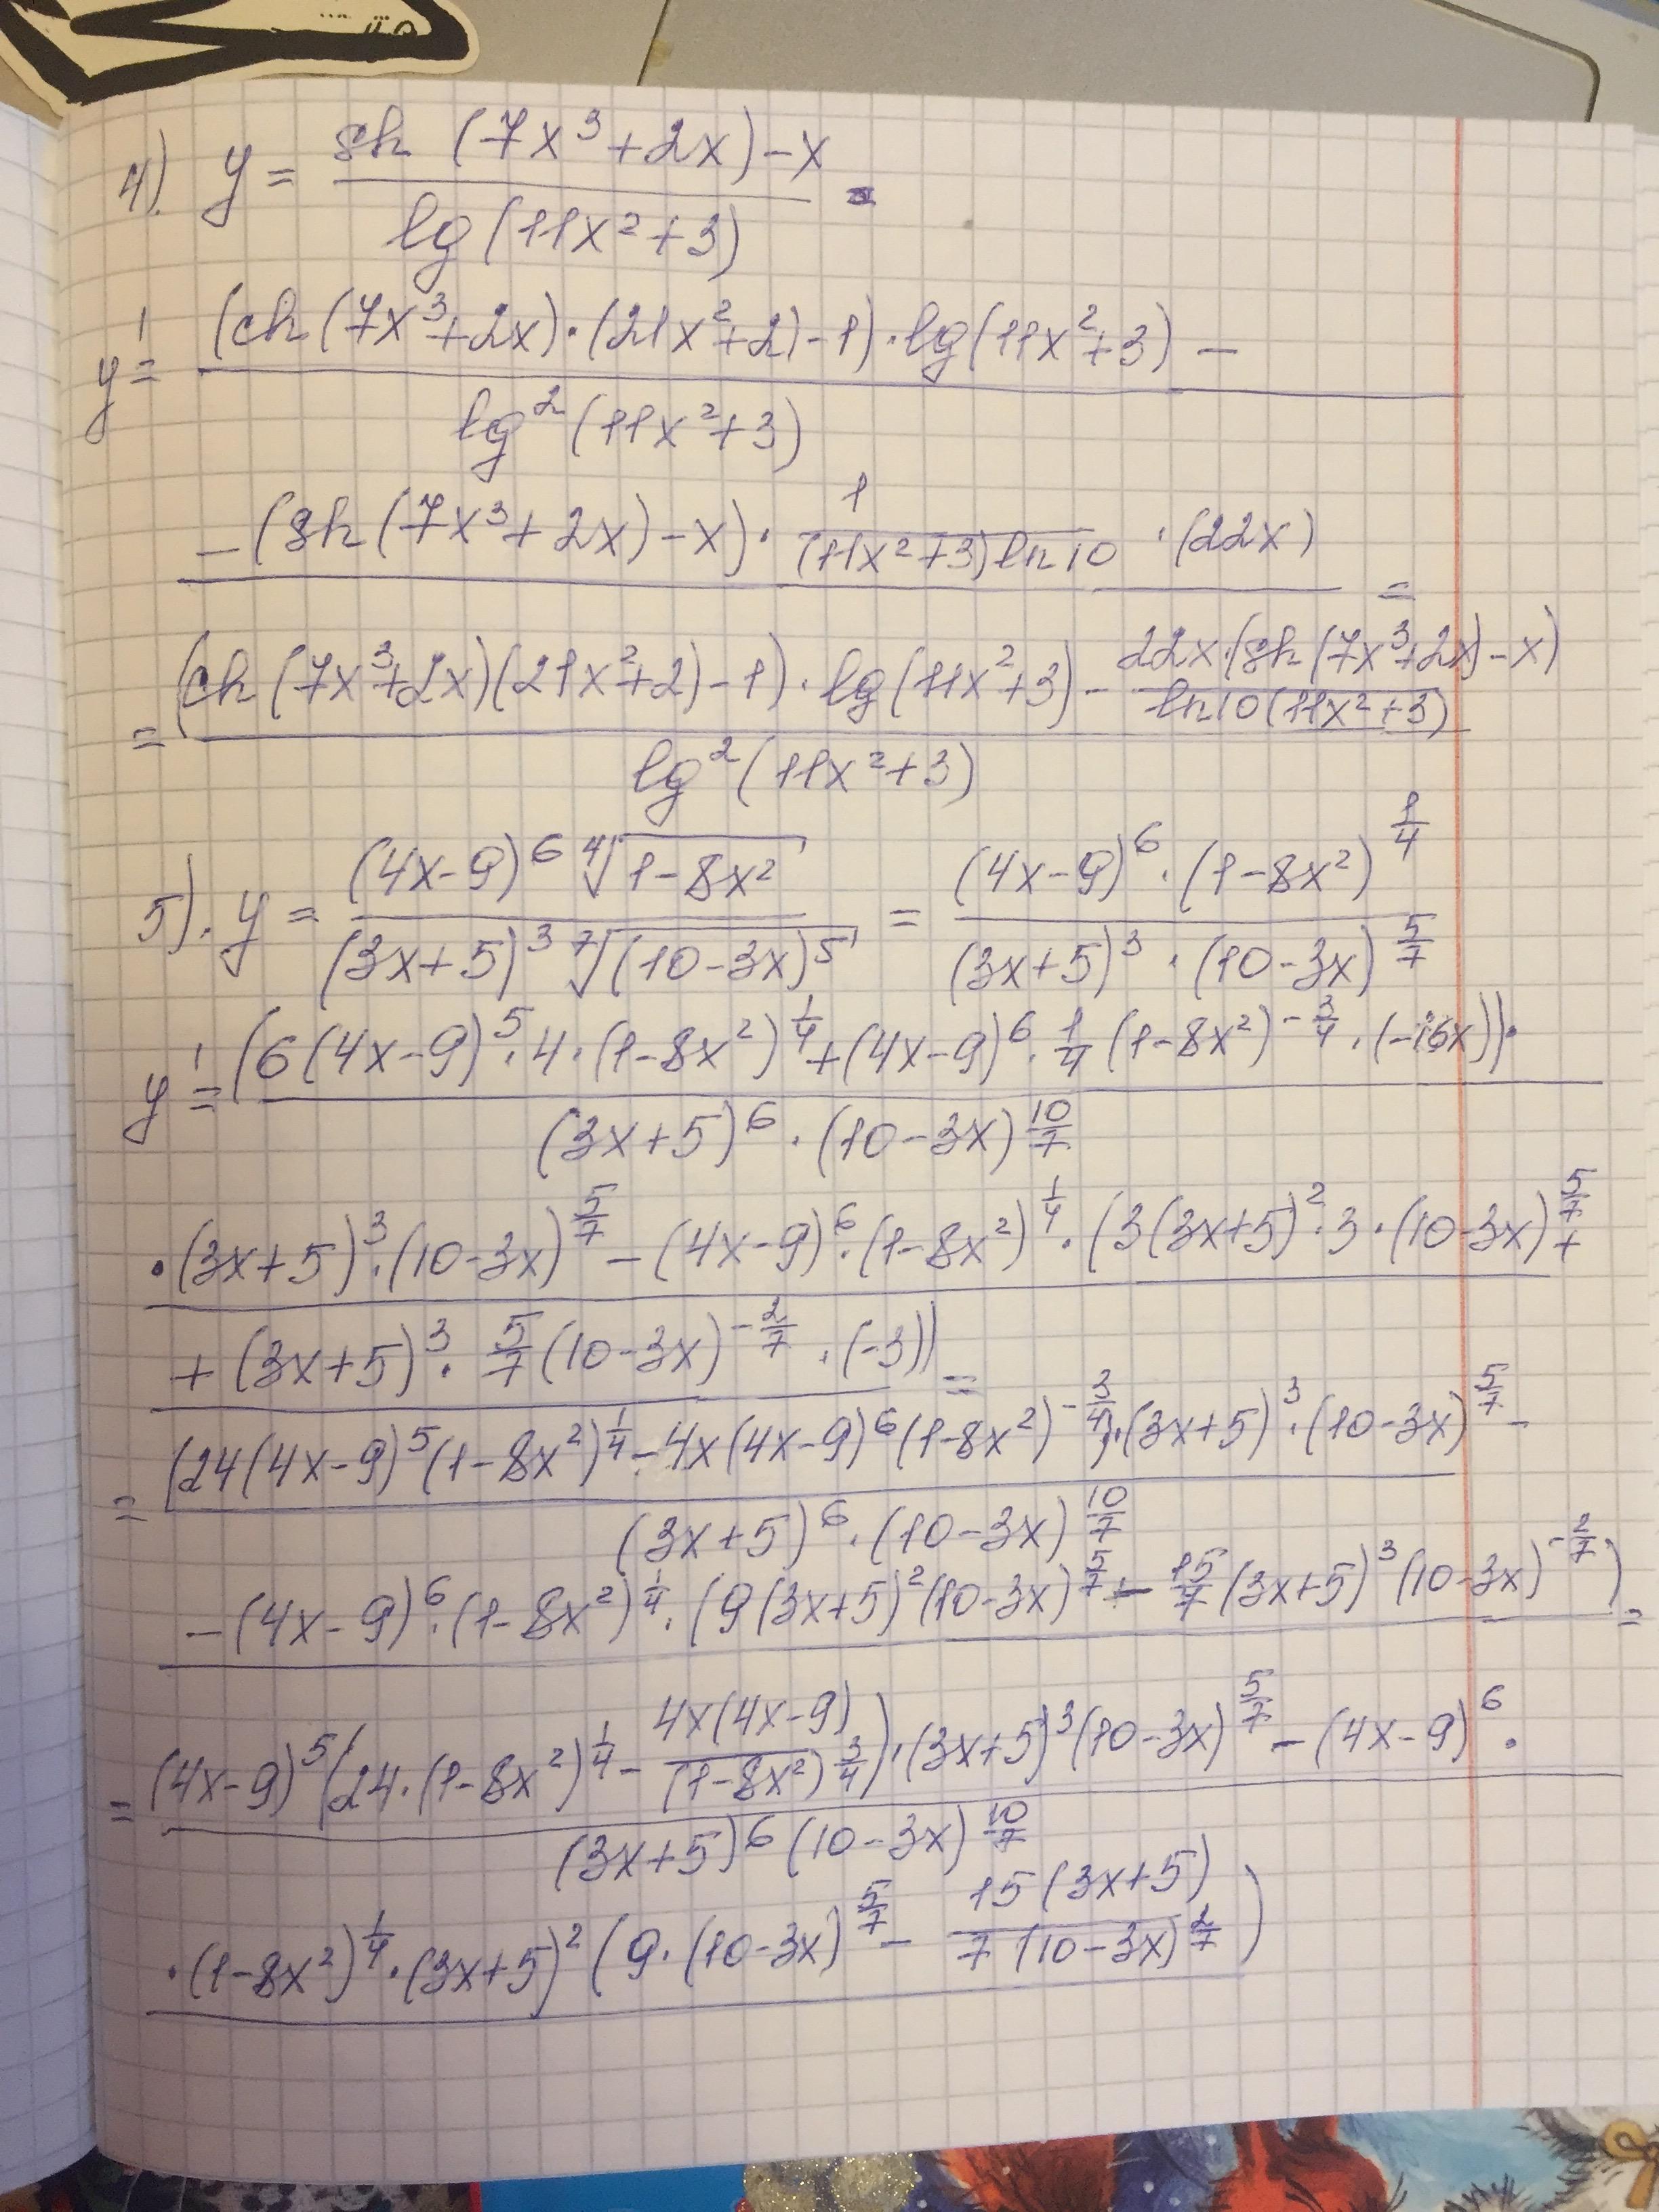 4). y = (sh (7x³+2x) - x) / (lg (11x²+3))
y' = ((ch (7x³+2x)·(21x²+2)-1)·lg(11x²+3) -) / (lg²(11x²+3))
-(sh(7x³+2x)-x)· 1/((11x²+3) ln10) ·(22x) =
= ((ch(7x³+2x)(21x²+2)-1)·lg(11x²+3) - (22x·(sh(7x³+2x)-x))/(ln10(11x²+3))) / (lg²(11x²+3))
5). y = ((4x-9)⁶ ⁴√(1-8x²)) / ((3x+5)³ ⁷√((10-3x)⁵)) = ((4x-9)⁶·(1-8x²)^(1/4)) / ((3x+5)³·(10-3x)^(5/7))
y' = ((6(4x-9)⁵·4·(1-8x²)^(1/4)+(4x-9)⁶·1/4(1-8x²)^(-3/4)·(-16x))·) / ((3x+5)⁶·(10-3x)^(10/7))
·(3x+5)³·(10-3x)^(5/7)-(4x-9)⁶·(1-8x²)^(1/4)·(3(3x+5)²·3·(10-3x)^(5/7)+
+(3x+5)³·5/7(10-3x)^(-2/7)·(-3)) =
= ((24(4x-9)⁵(1-8x²)^(1/4)-4x(4x-9)⁶(1-8x²)^(-3/4))·(3x+5)³·(10-3x)^(5/7) -) / ((3x+5)⁶·(10-3x)^(10/7))
-(4x-9)⁶·(1-8x²)^(1/4)·(9(3x+5)²(10-3x)^(5/7) - 15/7(3x+5)³(10-3x)^(-2/7)) =
= ((4x-9)⁵(24·(1-8x²)^(1/4) - (4x(4x-9))/((1-8x²)^(3/4)))·(3x+5)³(10-3x)^(5/7)-(4x-9)⁶·) / ((3x+5)⁶(10-3x)^(10/7))
·(1-8x²)^(1/4)·(3x+5)²(9·(10-3x)^(5/7) - (15(3x+5))/(7(10-3x)^(2/7)))